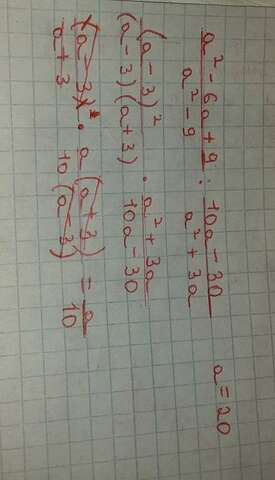 a² - 6a + 9 / a² - 9 : 10a - 30 / a² + 3a a = 20
(a - 3)² / (a - 3)(a + 3) · a² + 3a / 10a - 30
(a - 3) / a + 3 · a (a + 3) / 10 (a - 3) = a / 10